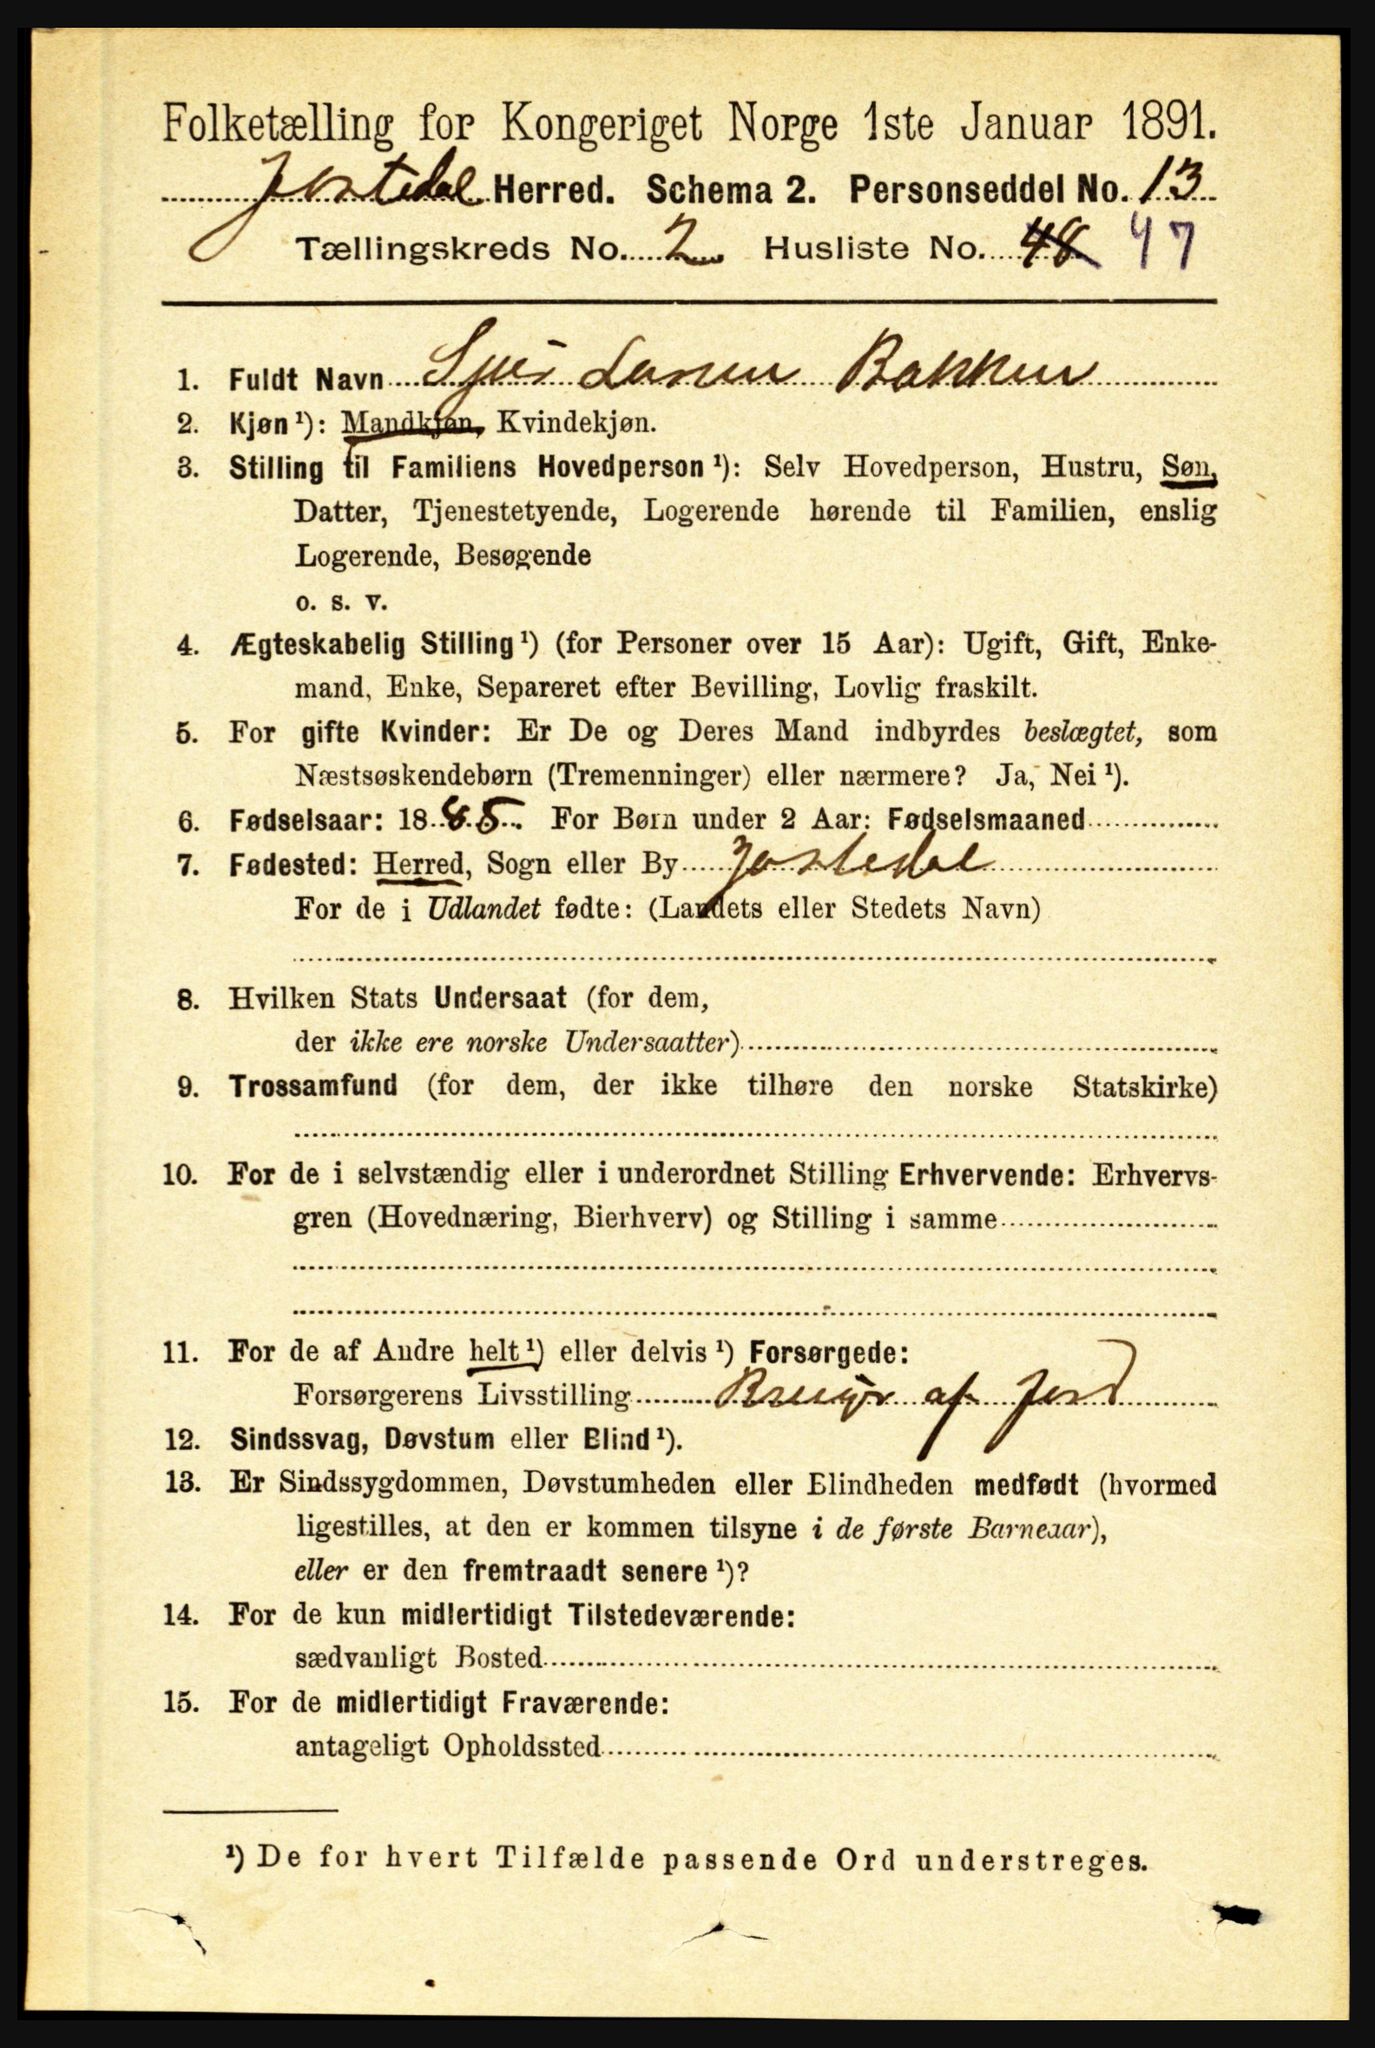 Folketælling for Kongeriget Norge 1ste Januar 1891.
Jostedal Herred. Schema 2. Personseddel No. 13
Tællingskreds No. 2 Husliste No. 48 47
1. Fuldt Navn Sjur Larsen Bakken
2. Kjøn ¹): Mandkjøn, Kvindekjøn.
3. Stilling til Familiens Hovedperson ¹): Selv Hovedperson, Hustru, Søn,
Datter, Tjenestetyende, Logerende hørende til Familien, enslig
Logerende, Besøgende
o. s. v.
4. Ægteskabelig Stilling ¹) (for Personer over 15 Aar): Ugift, Gift, Enke-
mand, Enke, Separeret efter Bevilling, Lovlig fraskilt.
5. For gifte Kvinder: Er De og Deres Mand indbyrdes beslægtet, som
Næstsøskendebørn (Tremenninger) eller nærmere? Ja, Nei ¹).
6. Fødselsaar: 1885. For Børn under 2 Aar: Fødselsmaaned
7. Fødested: Herred, Sogn eller By Jostedal
For de i Udlandet fødte: (Landets eller Stedets Navn)
8. Hvilken Stats Undersaat (for dem,
der ikke ere norske Undersaatter)
9. Trossamfund (for dem, der ikke tilhøre den norske Statskirke)
10. For de i selvstændig eller i underordnet Stilling Erhvervende: Erhvervs-
gren (Hovednæring, Bierhverv) og Stilling i samme
11. For de af Andre helt ¹) eller delvis ¹) Forsørgede:
Forsørgerens Livsstilling Bruger af Jord
12. Sindssvag, Døvstum eller Blind ¹).
13. Er Sindssygdommen, Døvstumheden eller Blindheden medfødt (hvormed
ligestilles, at den er kommen tilsyne i de første Barneaar),
eller er den fremtraadt senere ¹)?
14. For de kun midlertidigt Tilstedeværende:
sædvanligt Bosted
15. For de midlertidigt Fraværende:
antageligt Opholdssted
¹) De for hvert Tilfælde passende Ord understreges.